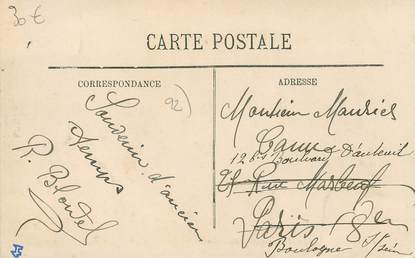 30€
CARTE POSTALE
CORRESPONDANCE
ADRESSE
92)
Souvenir d'ancien
temps
R. Blondel
Monsieur Maurice
12 bis Boulevard d'Auteuil
25 Rue Marbeuf
Paris 8e
Boulogne s/Seine